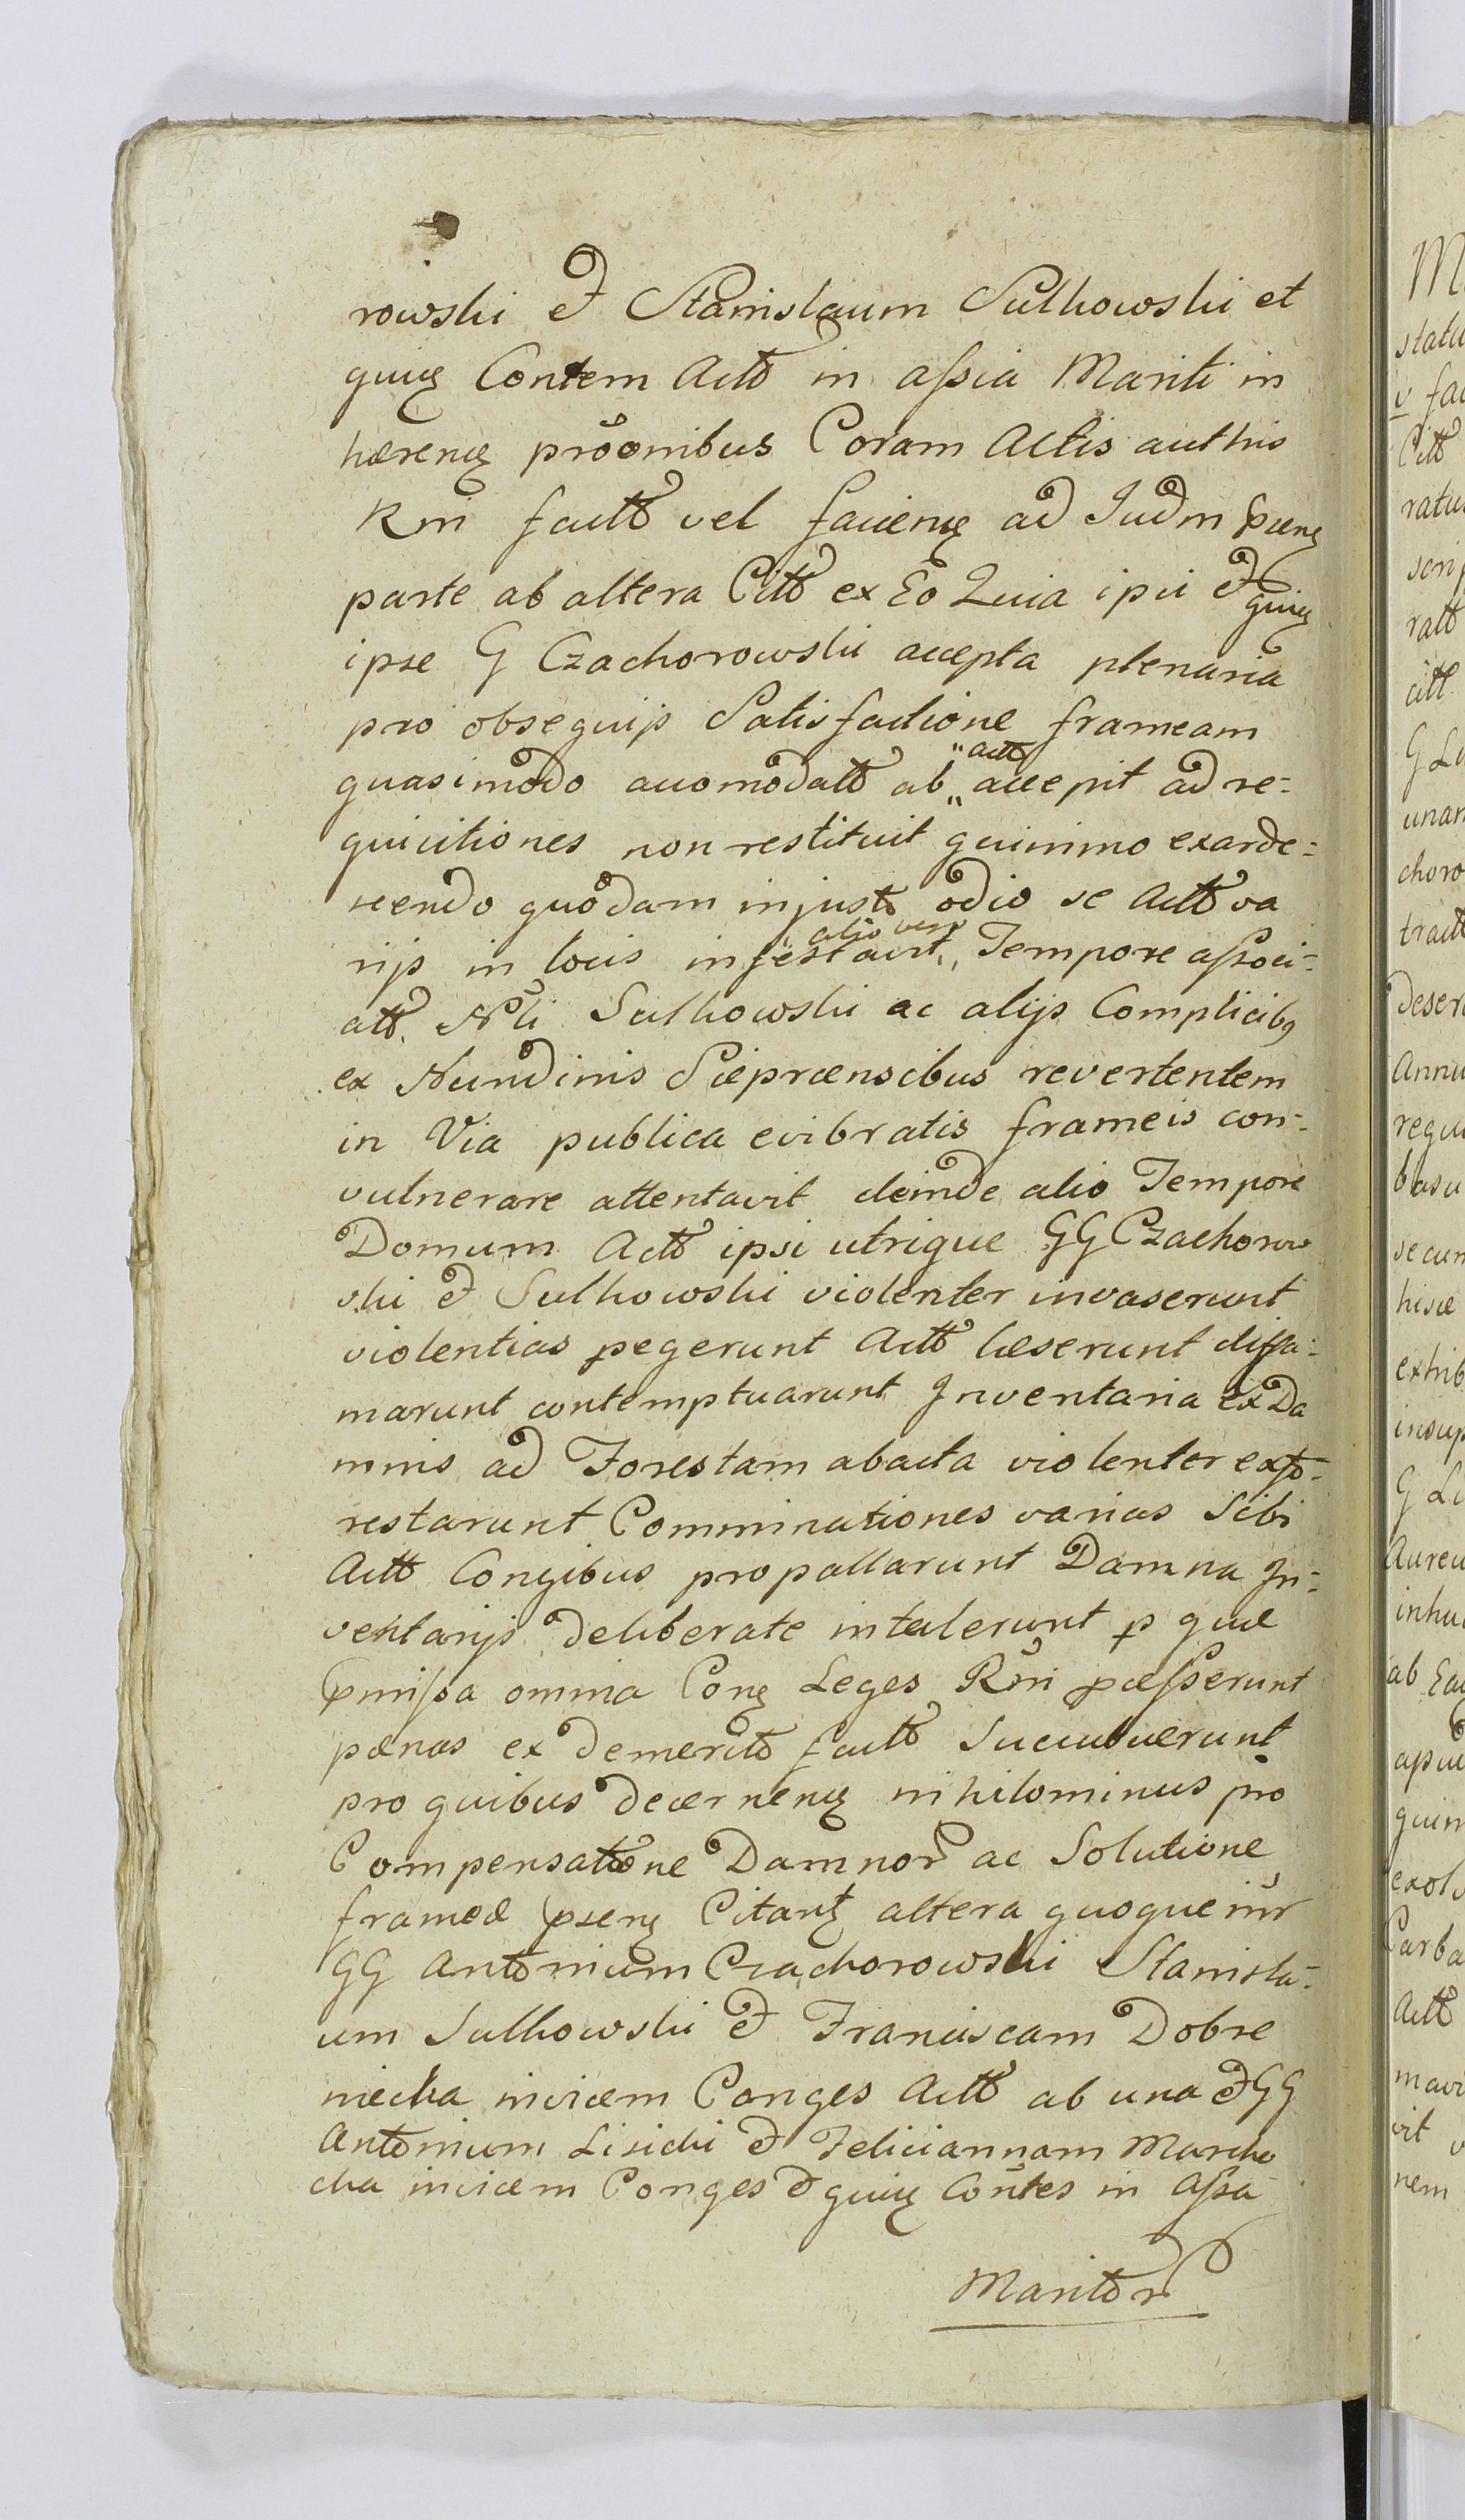 rowski & Stanislaum Sulkowski et
quius Contem Actt in assia Mariti in
hærens prôonibus Coram Actis authis
Rni factt vel faciens ad Judm psens
parte ab altera Citt ex Eo Quia ipsi & quius
ipse G Czachorowski accepta plenaria
pro obsequijs Satisfactione frameam
quasimodo accomodatt ab "actt" accepit ad re=
quisitiones non restituit quinimo exarde=
scendo quodam injusto odio se Actt va
rijs in locis infestavit, "alio vero" Tempore associ=
att. Nbli Sulkowski ac alijs Complicibus
ex Nundinis Siepræensibus revertentem
in Via publica evibratis frameis con=
vulnerare attentavit deinde alio Tempore
Domum Actt ipsi utrique GG Czachorow
ski & Sulkowski violenter invaserunt
violentias pegerunt Actt læserunt diffa=
marunt contemptuarunt Inventaria ex Da
mnis ad Forestam abacta violenter exfo=
restarunt Comminationes varias Sibi
Actt Congibus propallarunt Damna In=
ventarijs deliberate intulerunt p quæ
pmissa omnia Cons Leges Rni pcesserunt
pænas ex demerito factt Succubuerunt
pro quibus decernens nihilominus pro
Compensattone Damnor ac Solutione
frameæ psens Citant altera quoque inr
GG Antonium Czachorowski Stanisla=
um Sulkowski & Franciscam Dobre
niecka invicem Conges Actt ab una & GG
Antonium Lisicki & Feliciannam Marcho
cka invicem Conges & quius Contes in Assa
Maritor